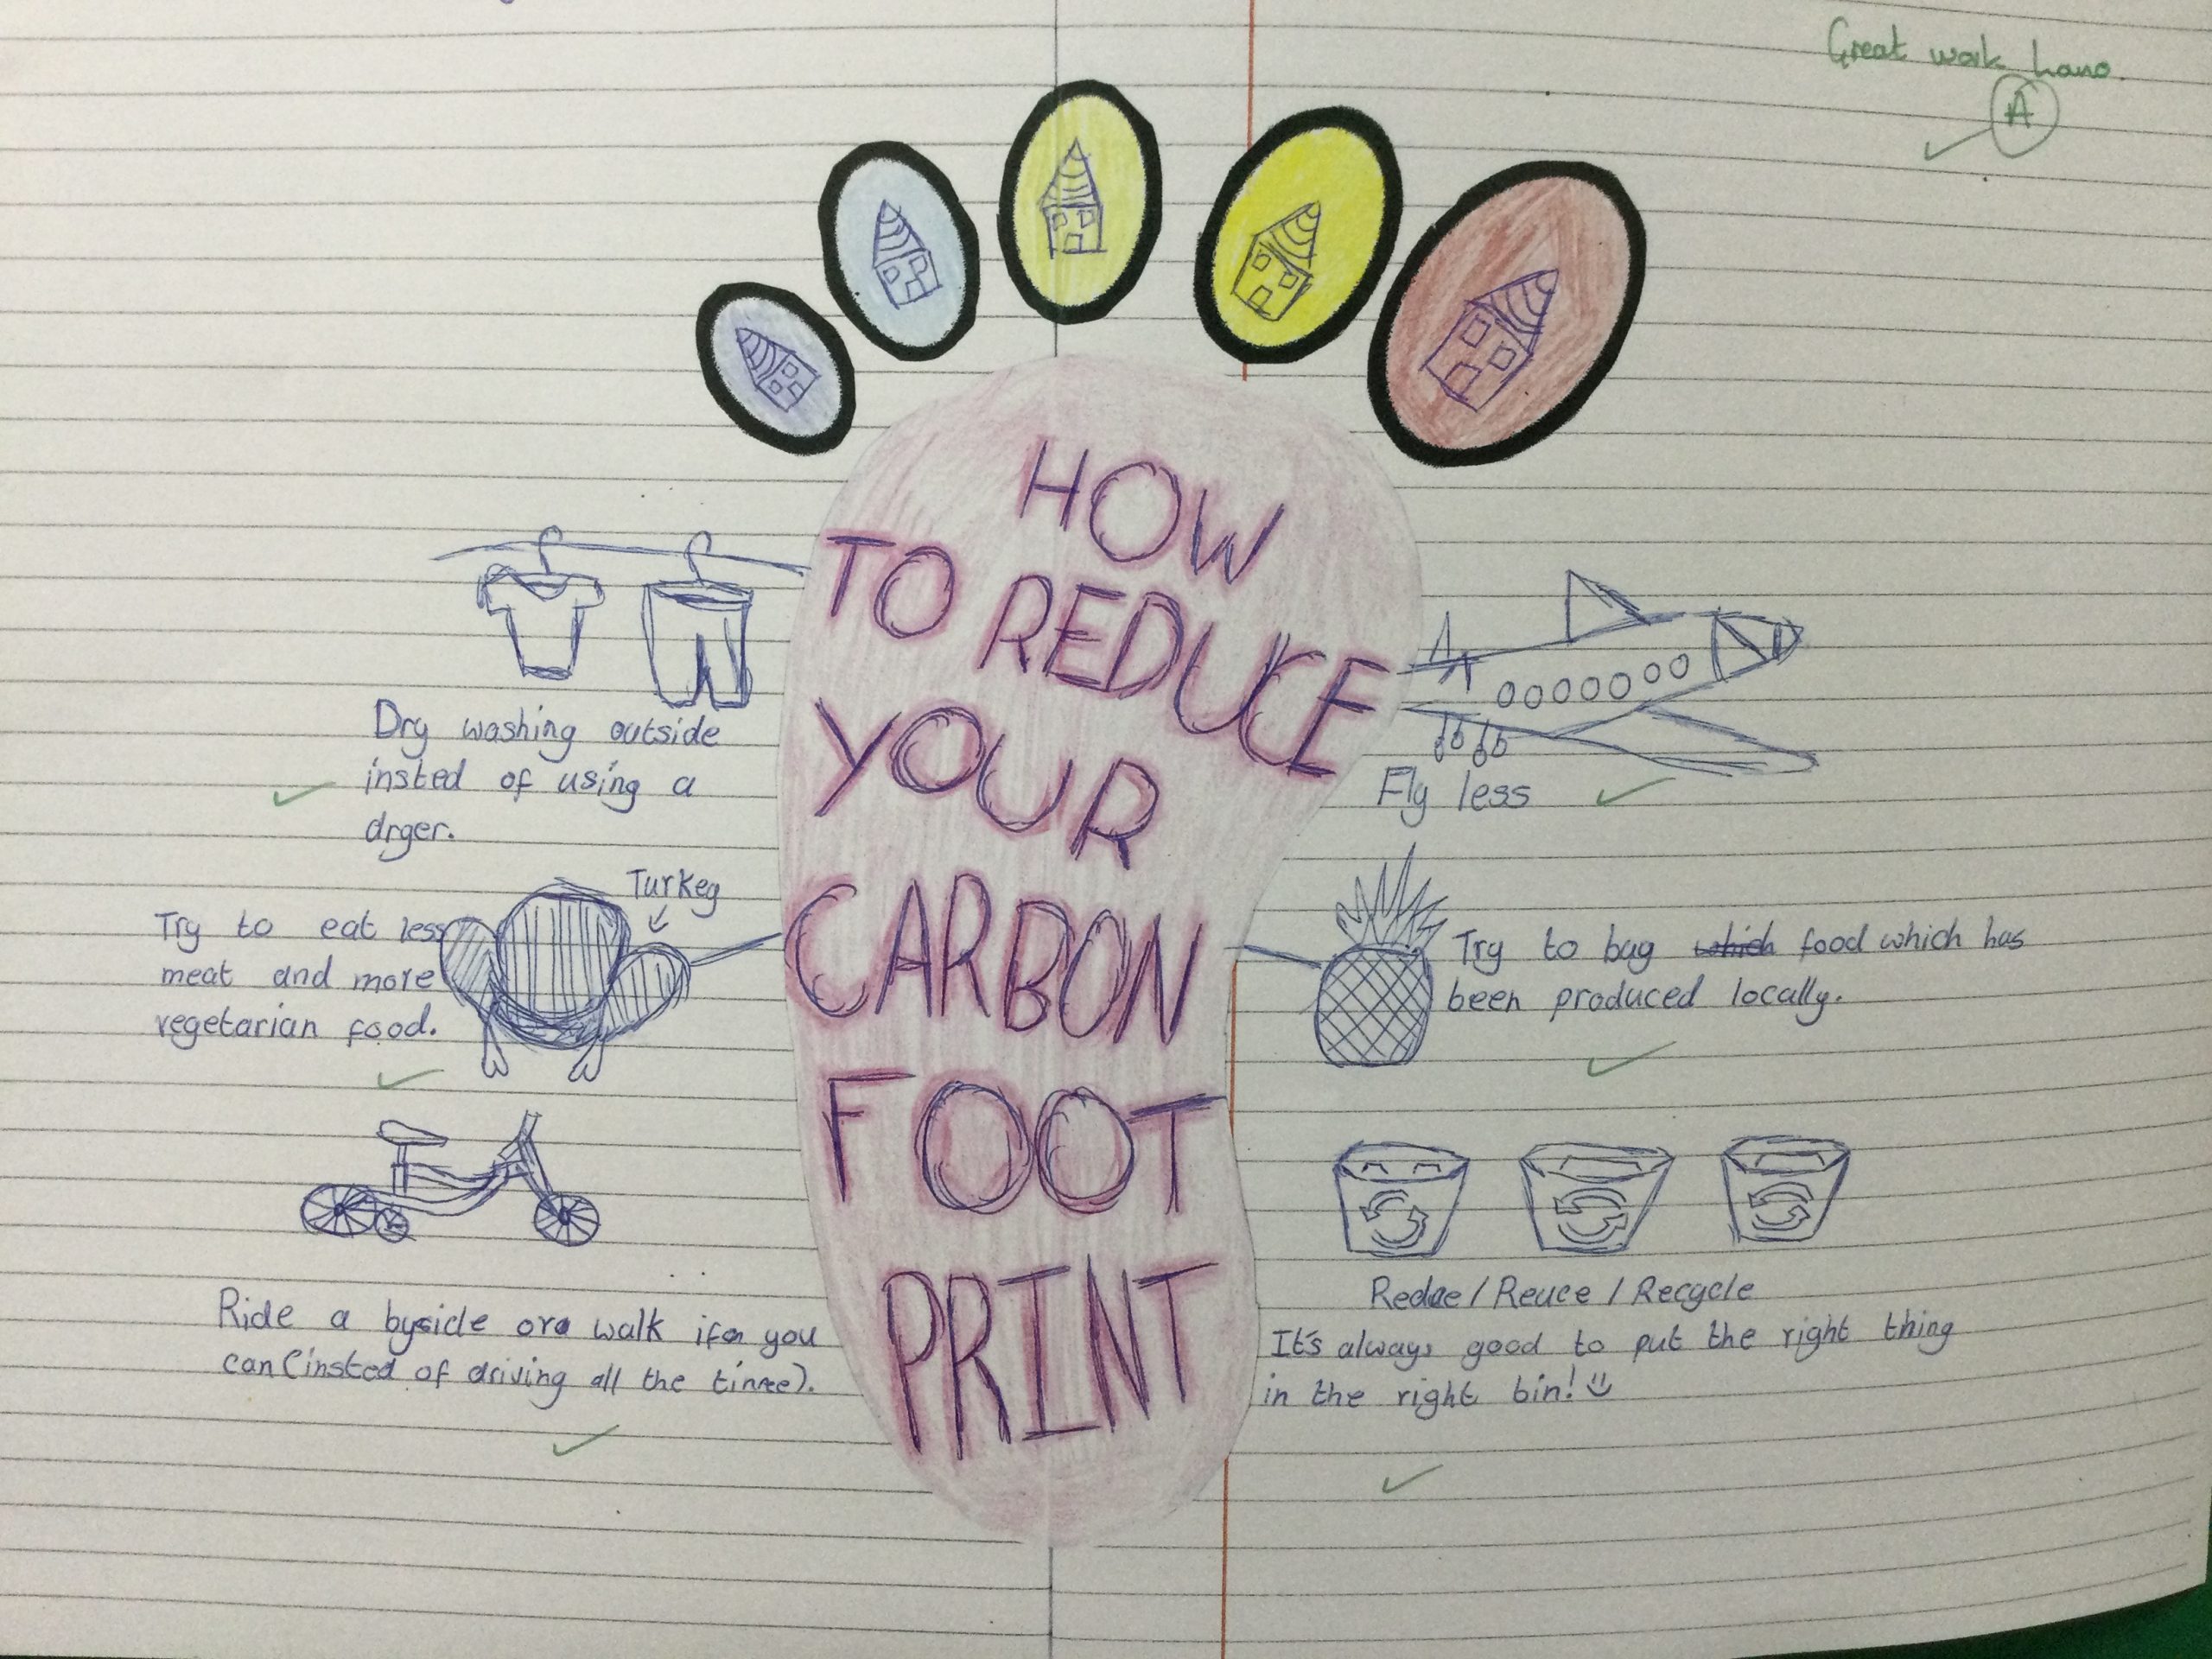 Great work
A
HOW
TO REDUCE
YOUR
CARBON
FOOT
PRINT
Dry washing outside
insted of using a
dryer.
Turkey
Try to eat less
meat and more
vegetarian food.
Ride a byside or walk if you
can (insted of driving all the time).
Fly less
Try to buy which food which has
been produced locally.
Redue / Reuce / Recycle
It's always good to put the right thing
in the right bin!